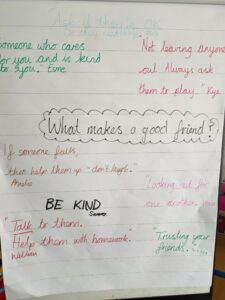 Ask if they're OK
Someone who cares
for you and is kind
to you." Esme
"Not leaving anyone
out. Always ask
them to play." Kye
What makes a good friend?
If someone falls,
then help them up - don't laugh.
"Looking out for
one another
BE KIND
"Talk to them.
Help them with homework."
"Trusting your
friends.